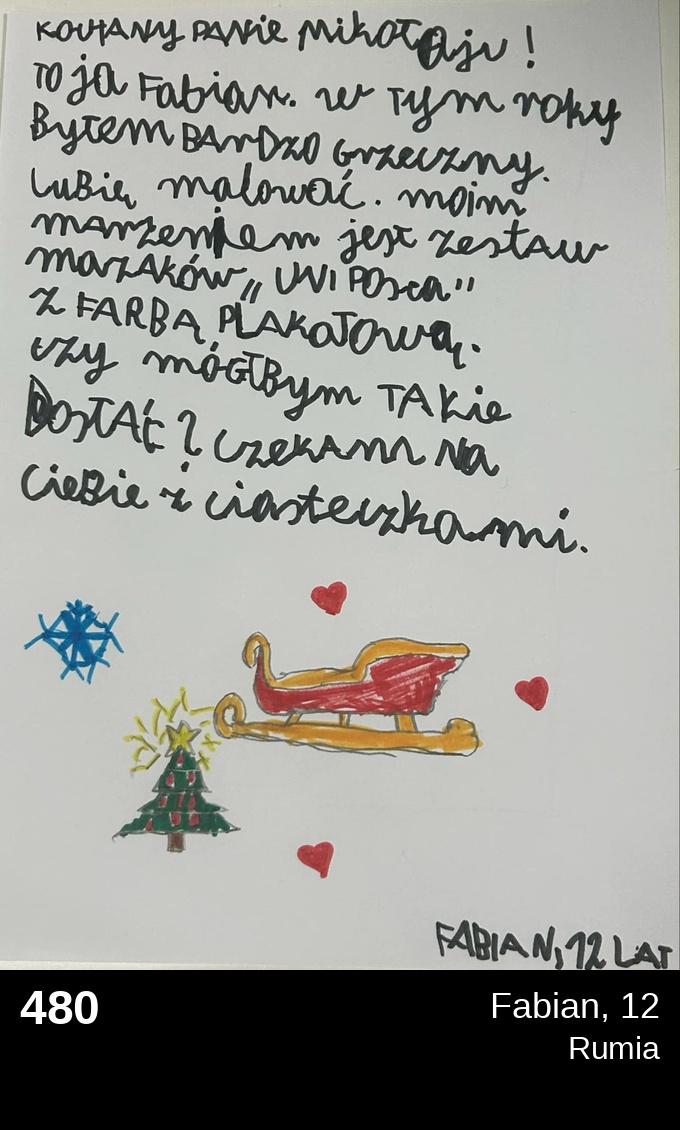 KOCHANY PANIE MikołAju !
TO ja Fabian. w TYm roky
ByłEm BARDZO Grzeczny.
Lubię malować. moim
marzeniem jest zestaw
mazAków „UNI POsca"
z FARBĄ PLAKATOWą.
czy mógłBym TAkie
DOSTAĆ? czekAm NA
CieBie z ciasteczkami.
FABIAN, 12 LAT
480
Fabian, 12
Rumia